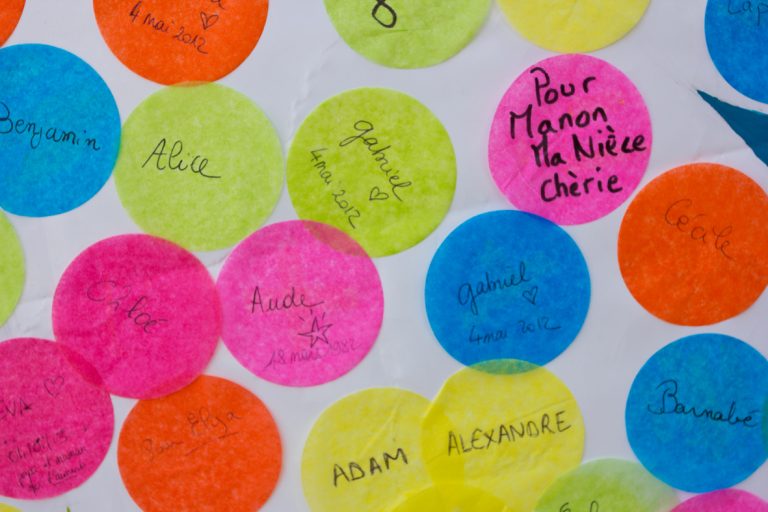 4 mai 2012
8
Benjamin
Alice
gabriel
4 mai 2012
Pour
Manon
Ma Nièce
Chèrie
Cécile
Chloé
Aude
18 mars 1982
gabriel
4 mai 2012
Barnabé
VA
Pour Elysa
ADAM
ALEXANDRE